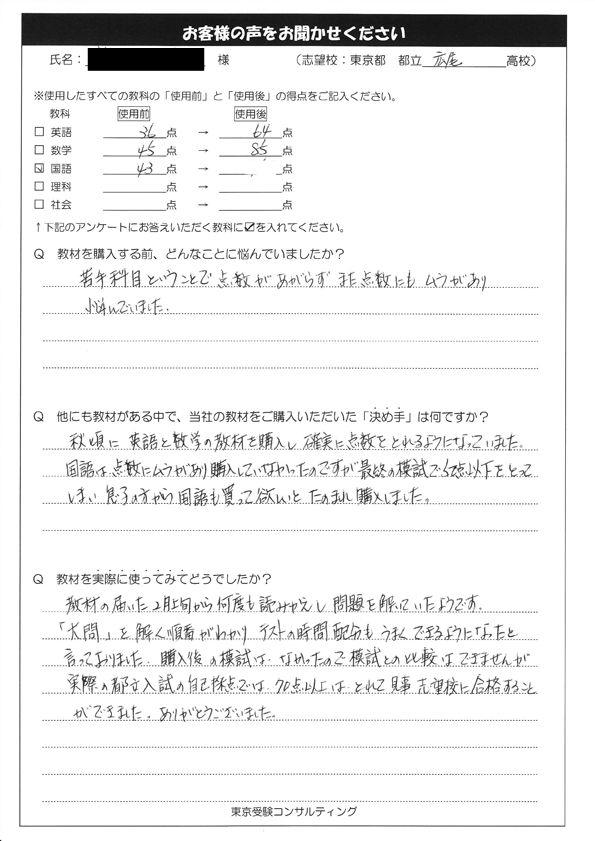 お客様の声をお聞かせください
氏名： 様 （志望校：東京都 都立 広尾 高校）
※使用したすべての教科の「使用前」と「使用後」の得点をご記入ください。
教科 使用前 使用後
□ 英語 36 点 → 64 点
□ 数学 45 点 → 85 点
☑ 国語 43 点 → 点
□ 理科 点 → 点
□ 社会 点 → 点
↑下記のアンケートにお答えいただく教科に☑を入れてください。
Q 教材を購入する前、どんなことに悩んでいましたか？
苦手科目ということで点数があがらず また点数にもムラがあり
悩んでいました.
Q 他にも教材がある中で、当社の教材をご購入いただいた「決め手」は何ですか？
秋頃に 英語と数学の教材を購入し 確実に点数をとれるようになっていました。
国語は点数にムラがあり購入していなかったのですが最終の模試で 点以下をとって
しまい 息子の方から国語も買って欲しいと たのまれ購入しました。
Q 教材を実際に使ってみてどうでしたか？
教材の届いた2月上旬から何度も読みかえし 問題を解いていたようです.
「大問」を解く順番がわかり テストの時間配分も うまくできるようになったと
言っておりました. 購入後の模試は なかったので模試との比較はできませんが
実際の都立入試の自己採点では、70点以上は とれて 見事 志望校に合格すること
ができました. ありがとうございました。
東京受験コンサルティング